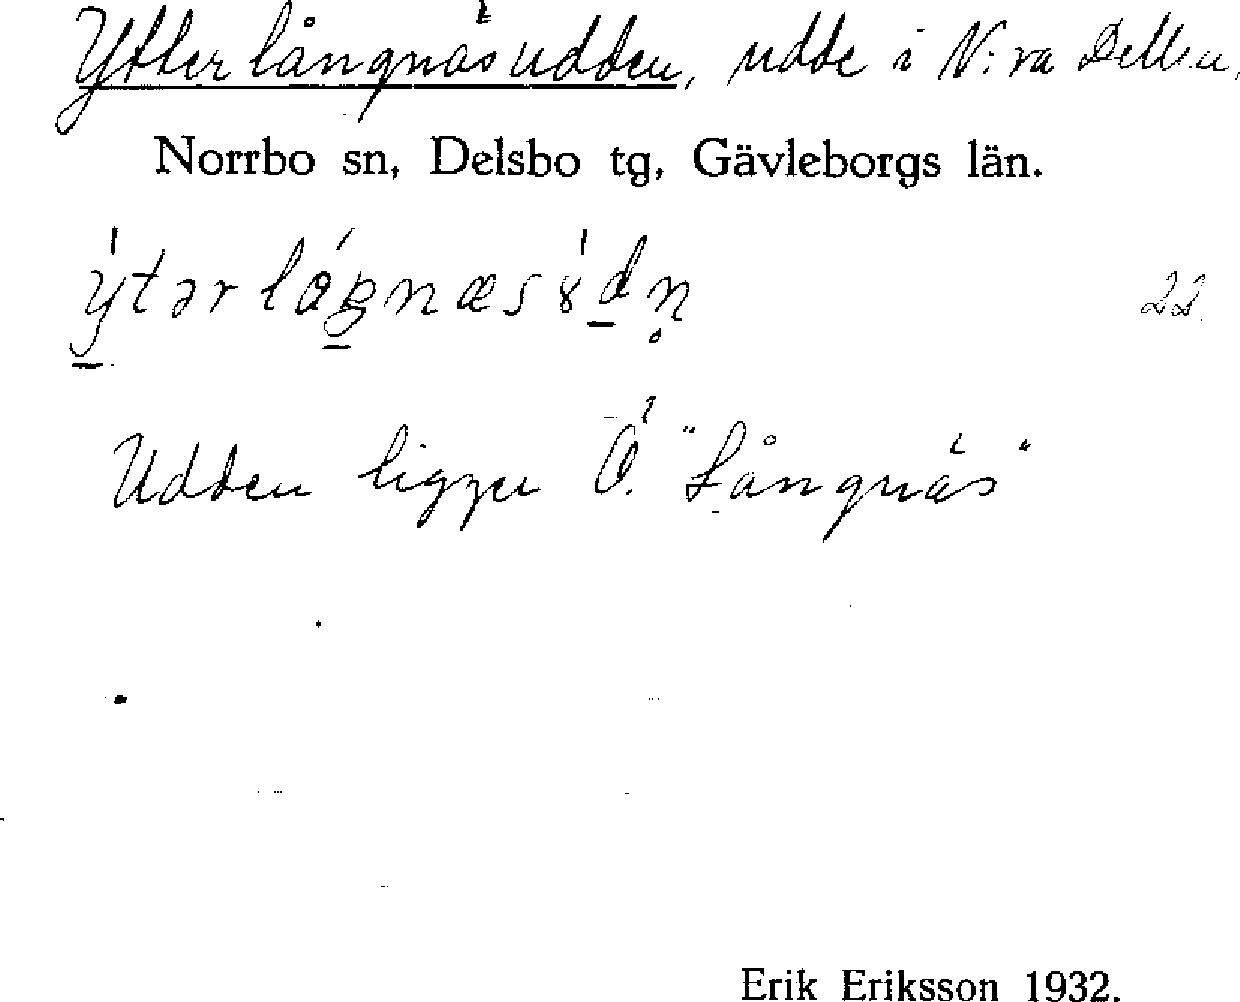 Ytterlångnäsudden, udde i N:ra Dellen,
Norrbo sn, Delsbo tg, Gävleborgs län.
22.
Udden ligger Ö. "Långnäs"
Erik Eriksson 1932.